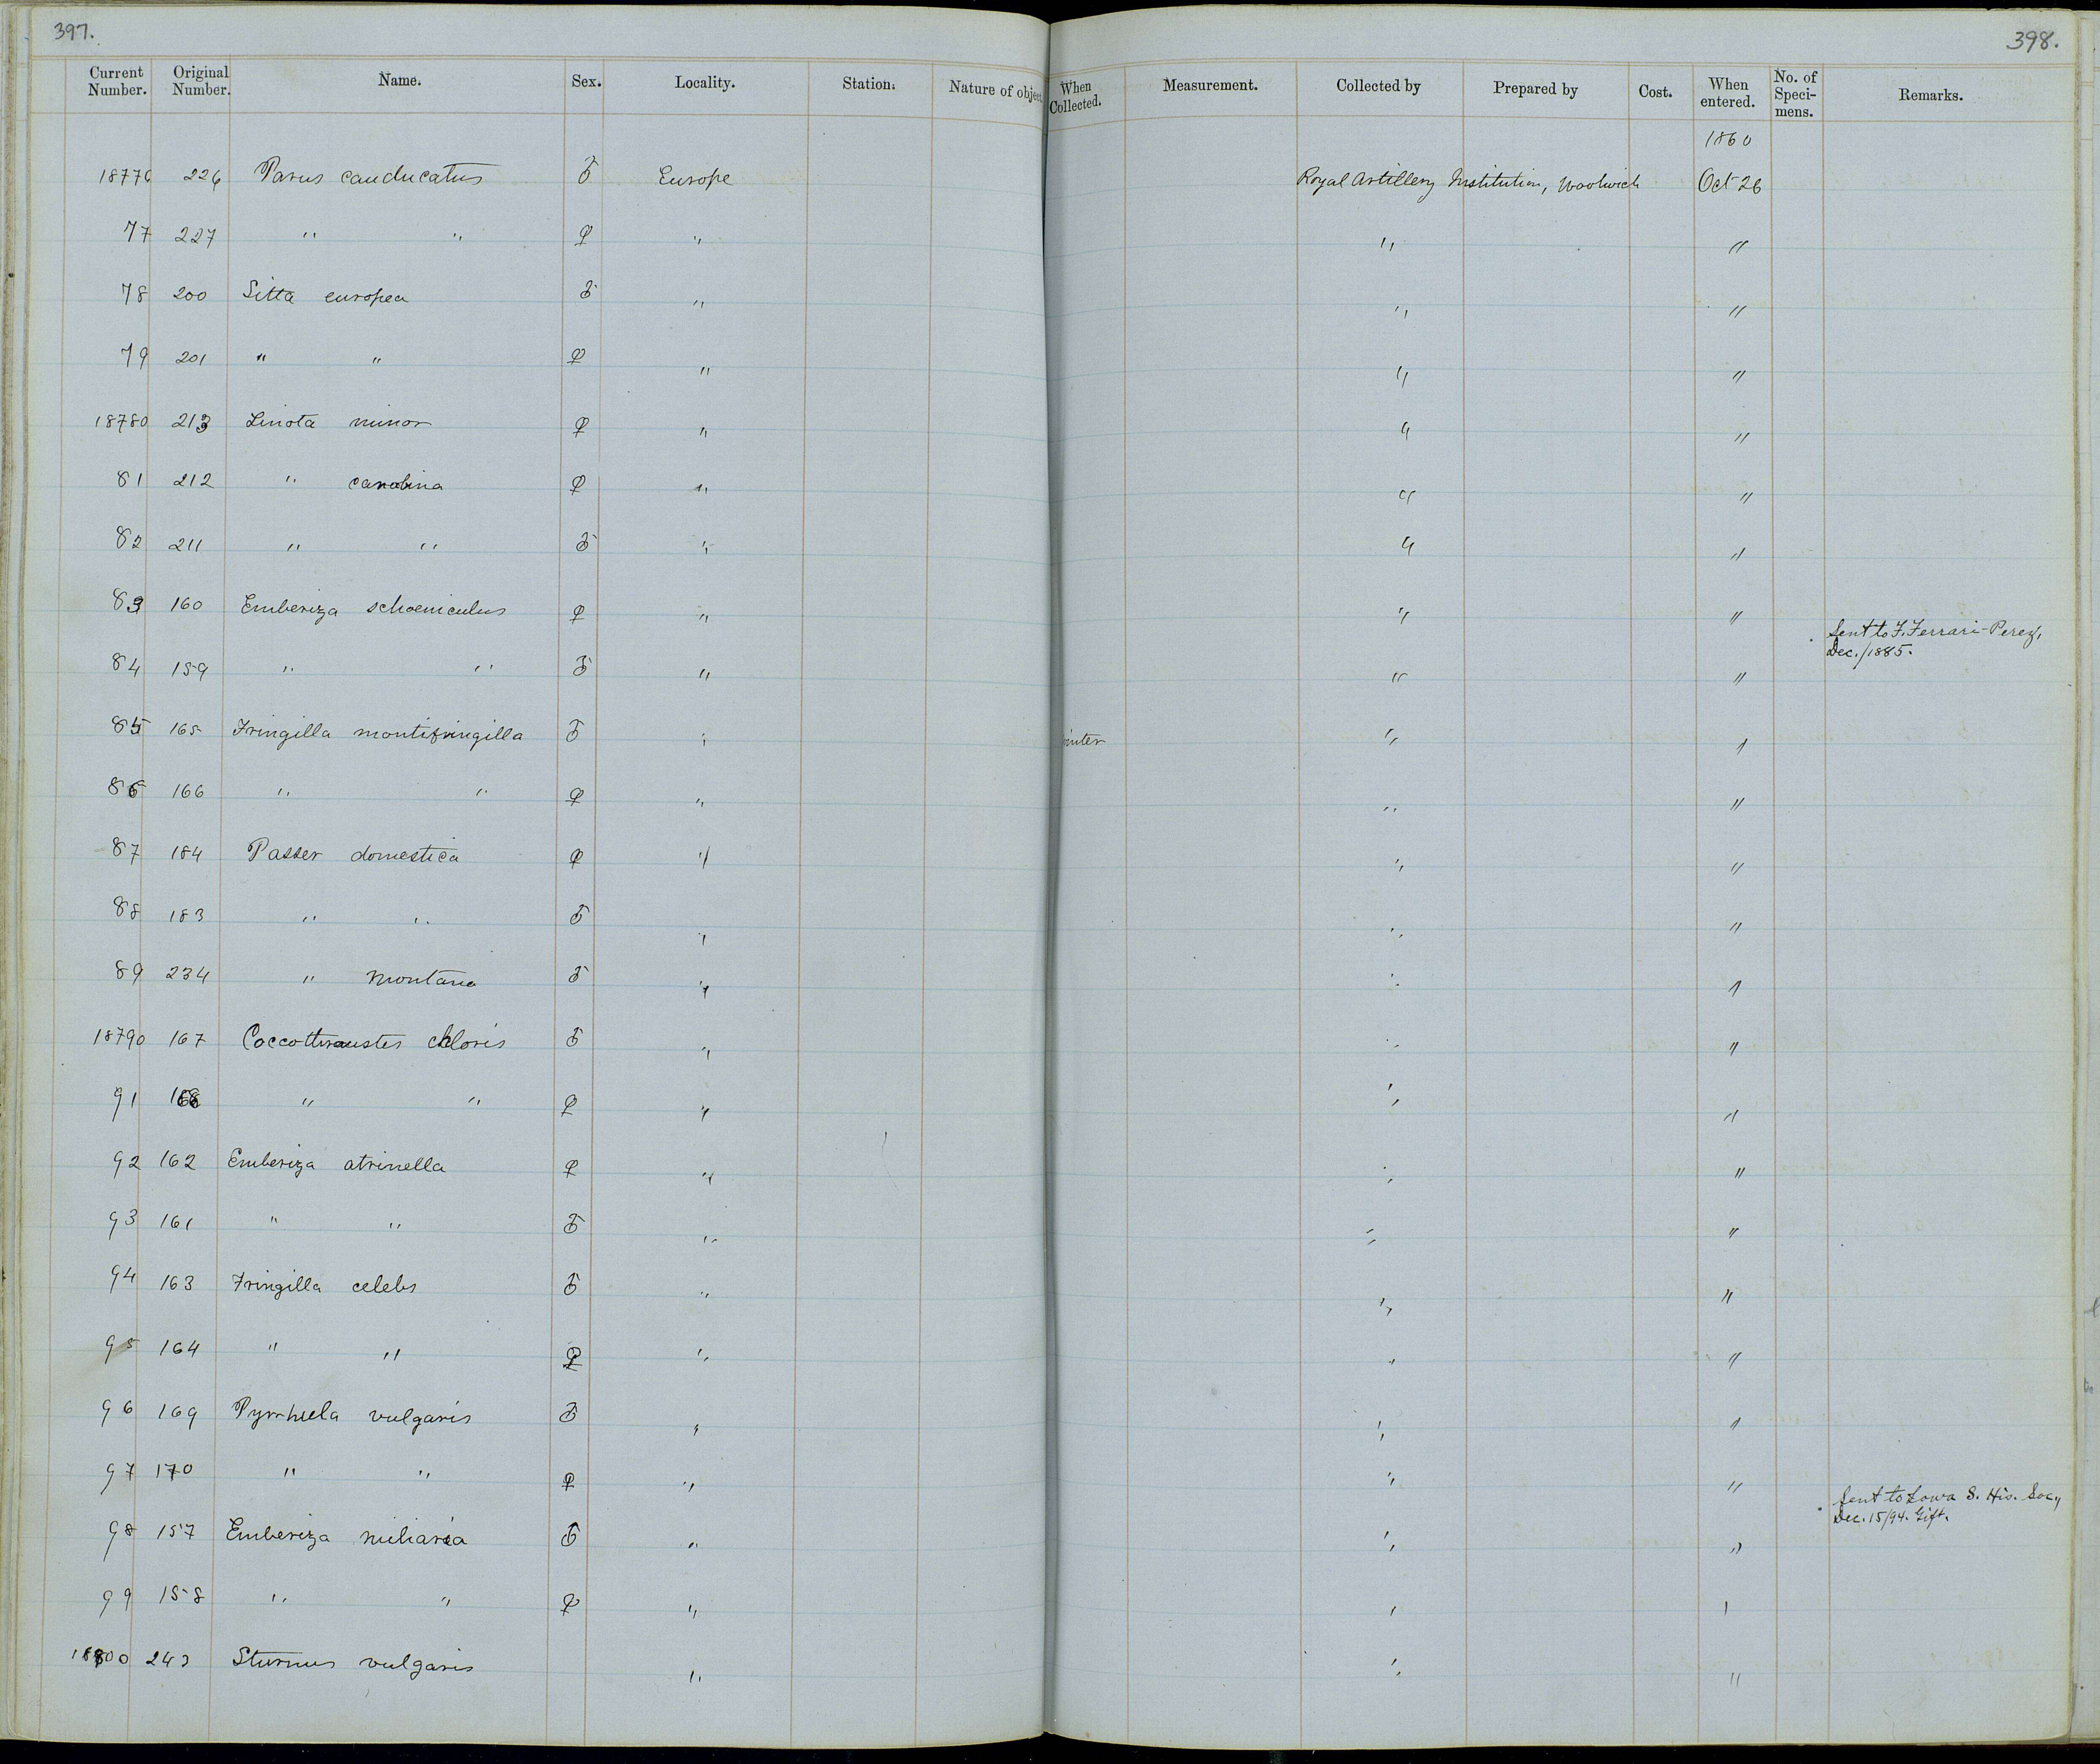 397.
398.
Current Number. Original Number. Name. Sex. Locality. Station. Nature of object When Collected. Measurement. Collected by Prepared by Cost. When entered. No. of Specimens. Remarks.
1860
18776 226 Parus cauducatus ♂ Europe Royal Artillery Institution, Woolwich Oct 26
77 227 " " ♀ " " "
78 200 Sitta europea ♂ " " "
79 201 " " ♀ " " "
18780 213 Linota minor ♀ " " "
81 212 " cannabina ♀ " " "
82 211 " " ♂ " " "
83 160 Emberiza schoeniculus ♀ " " "
84 159 " " ♂ " " " Sent to F. Ferrari-Perez, Dec./1885.
85 165 Fringilla montifringilla ♂ " winter " "
86 166 " " ♀ " " "
87 184 Passer domestica ♀ " " "
88 183 " " ♂ " " "
89 234 " montana ♂ " " "
18790 167 Coccothraustes chloris ♂ " " "
91 168 " " ♀ " " "
92 162 Emberiza atrinella ♀ " " "
93 161 " " ♂ " " "
94 163 Fringilla celebs ♂ " " "
95 164 " " ♀ " " "
96 169 Pyrrhula vulgaris ♂ " " "
97 170 " " ♀ " " "
98 157 Emberiza miliaria ♂ " " " Sent to Iowa S. His. Soc., Dec. 15/94. Gift.
99 158 " " ♀ " " "
18800 243 Sturnus vulgaris " " "